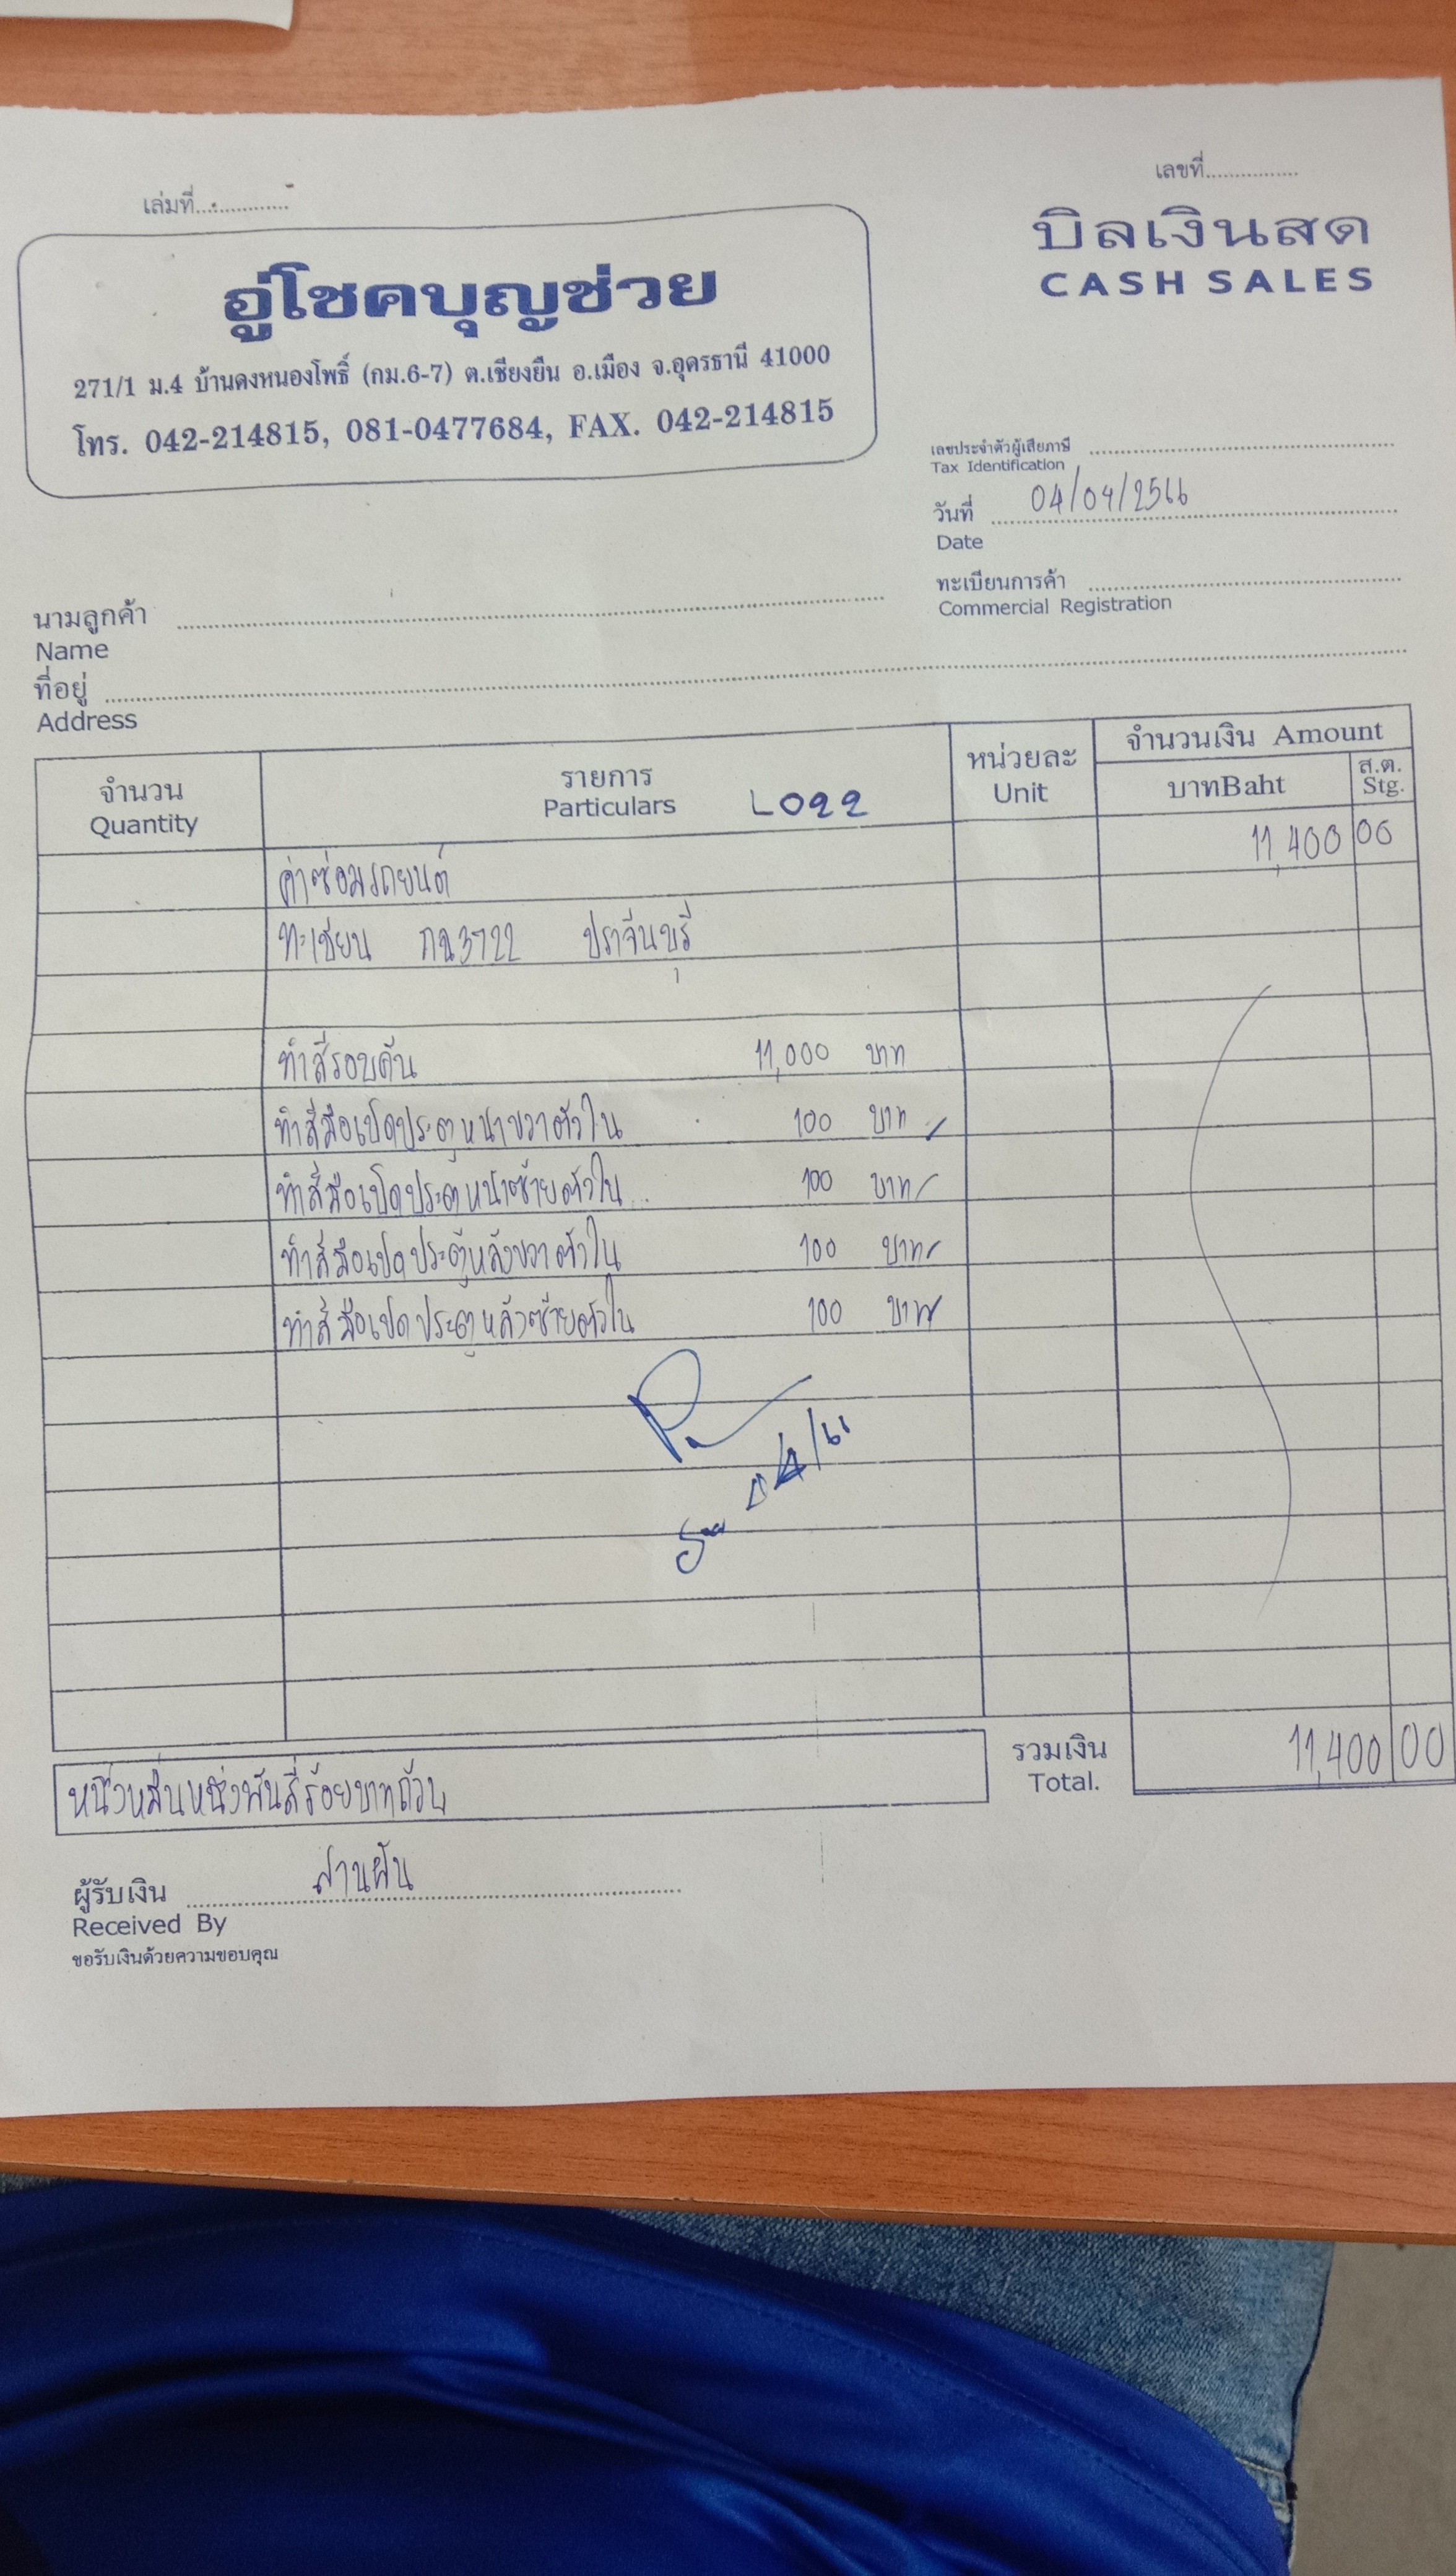 เล่มที่................
เลขที่................
บิลเงินสด
CASH SALES
อู่โชคบุญช่วย
271/1 ม.4 บ้านดงหนองโพธิ์ (กม.6-7) ต.เชียงยืน อ.เมือง จ.อุดรธานี 41000
โทร. 042-214815, 081-0477684, FAX. 042-214815
เลขประจำตัวผู้เสียภาษี
Tax Identification
วันที่ 04/04/2566
Date
ทะเบียนการค้า
Commercial Registration
นามลูกค้า
Name
ที่อยู่
Address
จำนวน รายการ หน่วยละ จำนวนเงิน Amount
Quantity Particulars L022 Unit บาทBaht ส.ต. Stg.
ค่าซ่อมรถยนต์ 11,400 00
ทะเบียน กฉ3722 ปราจีนบุรี
ทำสีรอบคัน 11,000 บาท
ทำสีมือเปิดประตูหน้าขวาตัวใน 100 บาท
ทำสีมือเปิดประตูหน้าซ้ายตัวใน 100 บาท
ทำสีมือเปิดประตูหลังขวาตัวใน 100 บาท
ทำสีมือเปิดประตูหลังซ้ายตัวใน 100 บาท
รวมเงิน 11,400 00
Total.
หนึ่งหมื่นหนึ่งพันสี่ร้อยบาทถ้วน
ผู้รับเงิน สานฝัน
Received By
ขอรับเงินด้วยความขอบคุณ